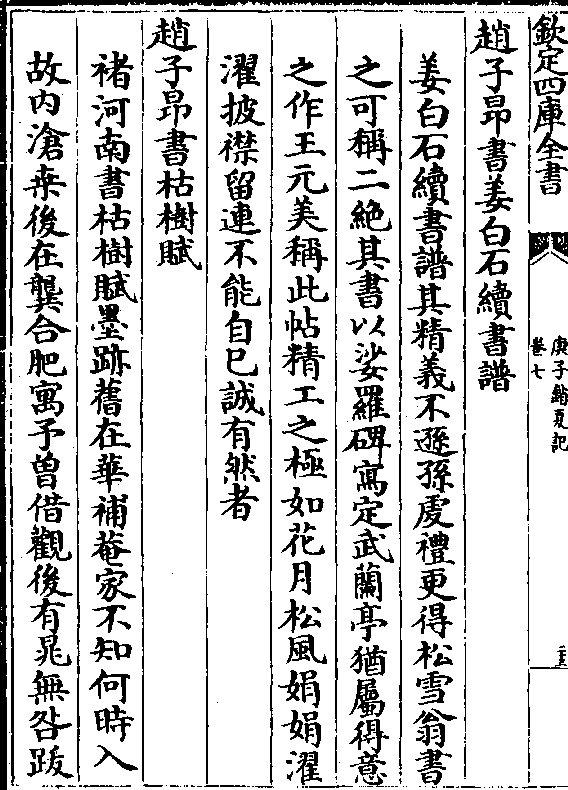 欽定四庫全書
庚子銷夏記
卷七
趙子昂書姜白石續書譜
姜白石續書譜其精義不遜孫虔禮更得松雪翁書
之可稱二絶其書以娑羅碑寫定武蘭亭猶屬得意
之作王元美稱此帖精工之極如花月松風娟娟濯
濯披襟留連不能自已誠有然者
趙子昂書枯樹賦
褚河南書枯樹賦墨跡舊在華補菴家不知何時入
故内滄桒後在龔合肥寓予曽借觀後有晁無咎䟦